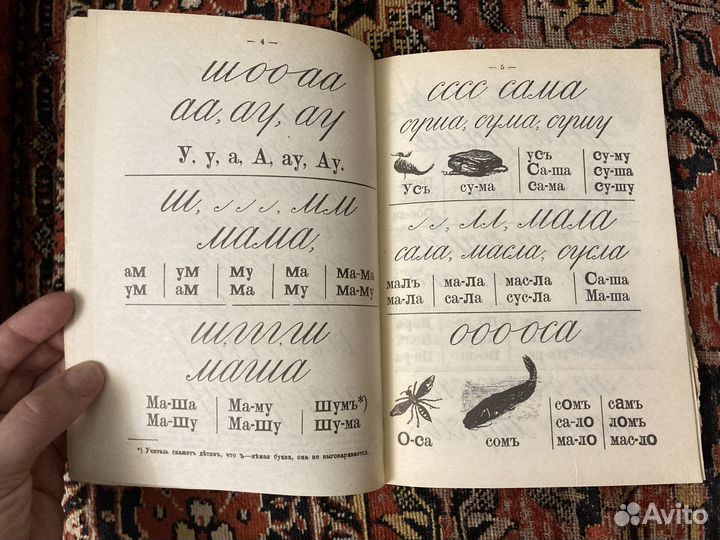 — 4 —
шооаа
аа, ау, ау
У, у, а, А, ау, Ау.
мама,
ам ум му ма ма-ма
ум ам ма му ма-му
маша
Ма-ша Ма-му Шумъ*)
Ма-шу Ма-шу шу-ма
*) Учитель скажетъ дѣтямъ, что ъ—нѣмая буква, она не выговаривается.
— 5 —
сссс сама
суша, сума, сушу
усъ су-ма
усъ Са-ша са-ма
су-му су-ша су-шу
лл, мала
сала, масла, сусла
малъ ма-ла мас-ла Са-ша
ма-ла са-ла сус-ла Ма-ша
ооо оса
О-са сомъ
сомъ самъ
са-ло ломъ
ма-ло мас-ло
Avito